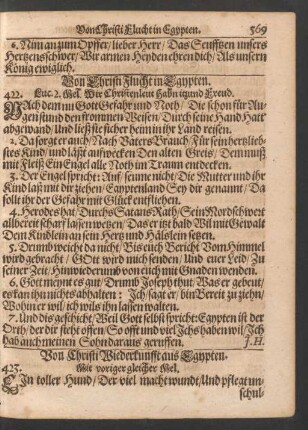 Von Christi Flucht in Egypten. 569
6. Nim an zum Opffer/ lieber Herr/ Das Seufftzen unsers
Hertzens schwer/ Wir armen Heyden ehren dich/ Als unsern
König ewiglich.
Von Christi Flucht in Egypten.
422. Luc. 2. Mel. Wir Christenleut habn itzund Freud.
NAch dem nu Gott Gefahr und Noth/ Die schon für Au-
gen stund den frommen Weisen/ Durch seine Hand Hatt
abgewand/ Und ließ sie sicher heim in ihr Land reisen.
2. Da sorgt er auch/ Nach Vaters Brauch/ Für sein hertzlieb-
stes Kind/ und läßt aufwecken Den alten Greis/ Dem muß
mit Fleiß Ein Engel alle Noth im Traum entdecken.
3. Der Engel spricht: Auf/ seume nicht/ Die Mutter und ihr
Kind laß mit dir ziehen/ Egyptenland Sey dir genannt/ Da
sollt ihr der Gefahr mit Glück entfliehen.
4. Herodes hat/ Durchs Satans Rath/ Sein Mordschwert
allbereit scharf lassen wetzen/ Das er itzt bald Wil mit Gewalt
Dem Kindlein an sein Hertz und Hälslein setzen.
5. Drum weich da nicht/ Bis euch Bericht Vom Himmel
wird gebracht/ GOtt wird mich senden/ Und euer Leid/ Zu
seiner Zeit/ Hinwiederumb von euch mit Gnaden wenden.
6. Gott meynt es gut/ Drumb Joseph thut/ Was er gebeut/
es kan ihn nichts abhalten: Ich/ sagt er/ bin Bereit zu ziehn/
Wohin er wil/ ich wil es ihn lassen walten.
7. Und dis geschicht/ Weil Gott selbst spricht: Egypten ist der
Orth/ der dir steht offen/ So offt und viel Ichs haben wil/ Ich
hab auch meinen Sohn daraus geruffen. J. H.
Von Christi Wiederkunfft aus Egypten.
423. Mit voriger gleicher Mel.
EIn toller Hund/ Der viel macht wundt/ Und pflegt un-
schul-